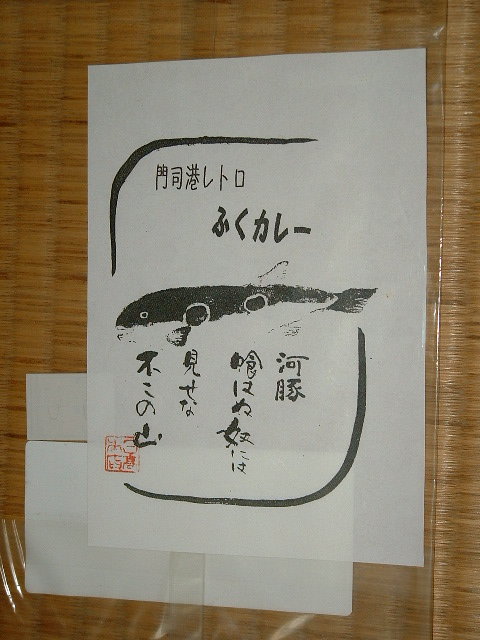 門司港レトロ
ふくカレー
河豚
喰はぬ奴には
見せな
不二の山